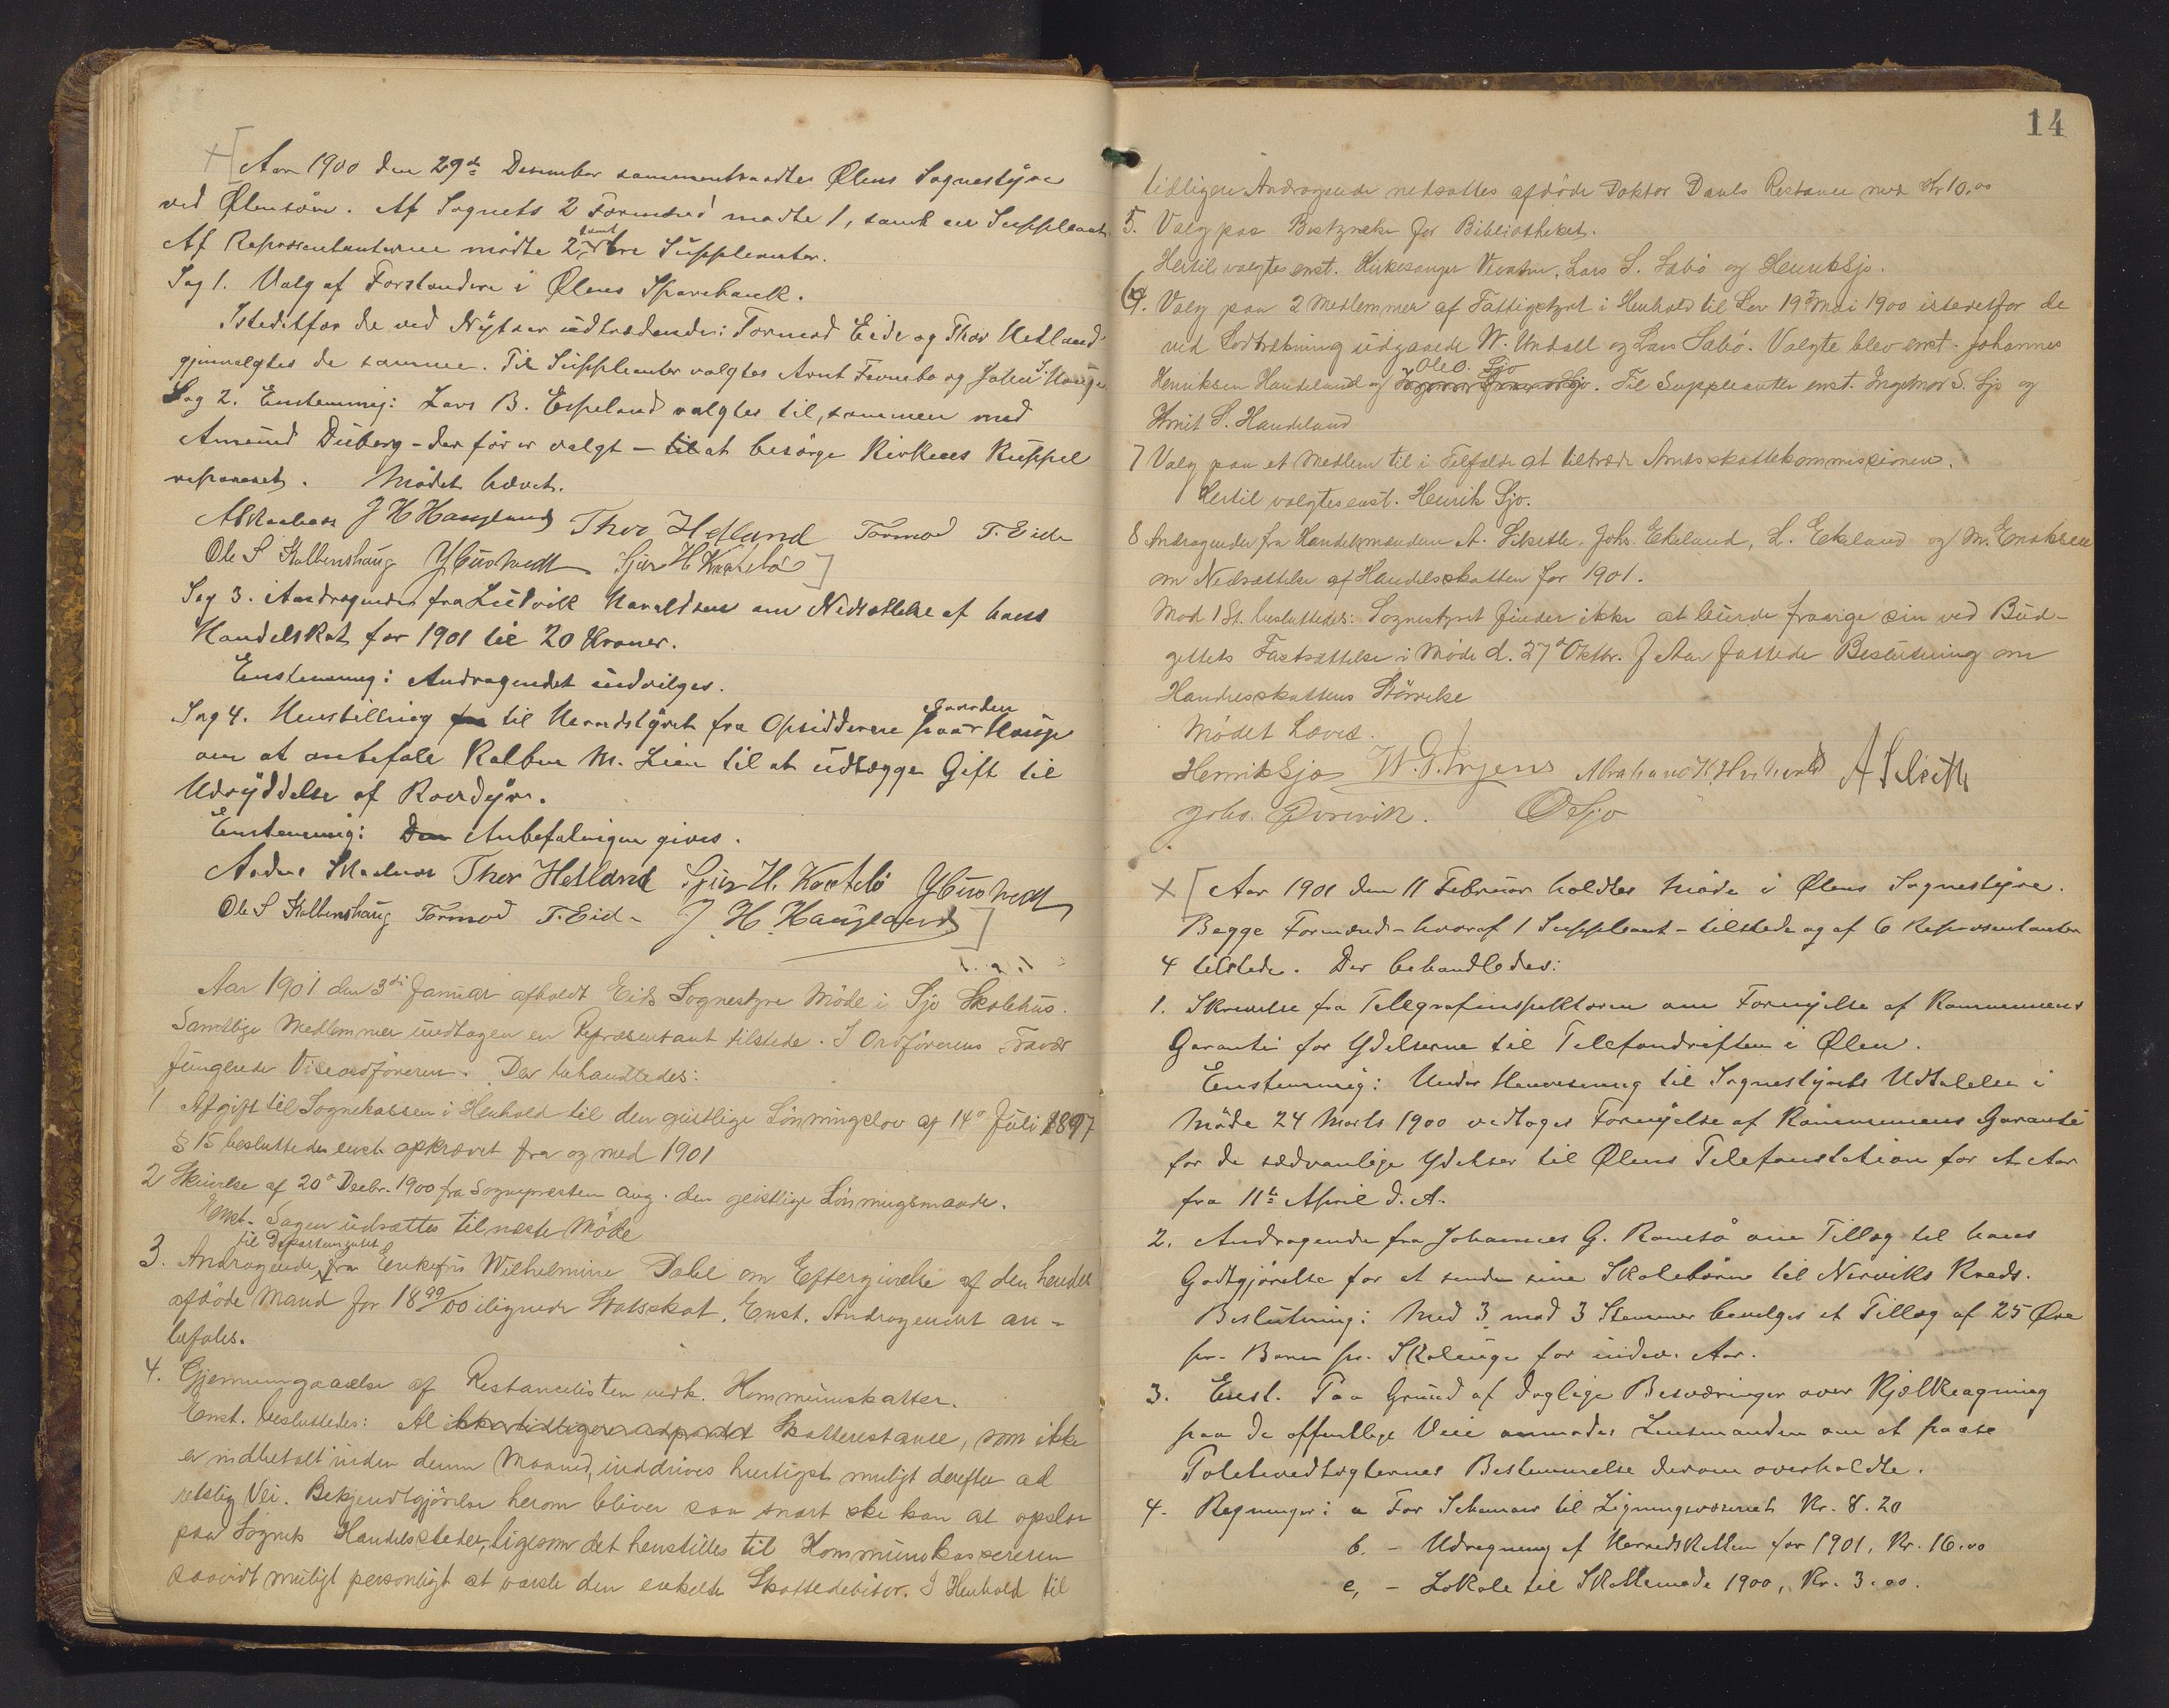 Aar 1900 den 29de Desember sammentraadte Ølens Sognestyre
ved Ølensøen. Af Sognets 2 Formænd mødte 1, samt en Suppleant.
Af Repræsentanterne mødte 2 samt tre Suppleanter.
Sag 1. Valg af Forstandere i Ølens Sparebank.
Istedetfor de ved Nytaar udtrædende: Tormod Eide og Thor Hetland
gjenvalgtes de samme. Til Suppleanter valgtes Arnt og John Hauge
Sag 2. Enstemmig: Lars B. Espeland valgtes til, sammen med
Amund Duberg - der før er valgt - til at besørge Kirkens Kuppel
repareret. Mødet hævet.
J H Haugland Thor Hetland Tormod T. Eide
Ole S Kalbenshaug Sjur H Kaatebø
Sag 3. Andragende fra Ludvik Haraldsen om Nedsættelse af hans
Handelskat for 1901 til 20 Kroner.
Enstemmig: Andragendet indvilges.
Sag 4. Henstilling fra til Herredstyret fra Opsidderne paa Gaarden Hauge
om at anbefale Kalben M. Lien til at udlægge Gift til
Udryddelse af Rovdyr.
Enstemmig: Den Anbefalingen gives.
Thor Hetland Sjur H. Kaatebø
Ole S Kalbenshaug Tormod T. Eide J. H. Haugland
Aar 1901 den 3die Januar afholdt Eids Sognestyre Møde i Sjo Skolehus.
Samtlige Medlemmer undtagen en Repræsentant tilstede. I Ordførerens Fravær
fungerede Viseordføreren. Der behandledes:
1 Afgift til Sognekassen i Henhold til den geistlige Lønningslov af 14de Juli 1897
§ 15 besluttedes enst. opkrævet fra og med 1901
2 Skrivelse af 20de Decbr. 1900 fra Sognepresten ang. den geistlige Lønningsmaade.
Enst. Sagen udsættes til næste Møde
3. Andragende til Departementet fra Enkefru Wilhelmine Dahl om Eftergivelse af den hendes
afdøde Mand for 1899/00 ilignede Statsskat. Enst. Andragendet an-
befales.
4. Gjennemgaaelse af Restancelisten vedk. Kommuneskatter.
Enst. besluttedes: Al Skatterestance, som ikke
er indbetalt inden denne Maaned, inddrives hurtigst muligt derefter ad
retslig Vei. Bekjendtgjørelse herom bliver saa snart ske kan at opslaa
paa Sognets Handelssteder, ligesom det henstilles til Kommunekassereren
saavidt muligt personligt at varsle den enkelte Skattedebitor. I Henhold til
14
tidligere Andragende nedsattes afdøde Doktor Dauls Restance med Kr 10.00
5. Valg paa Bestyrelse for Bibliotheket.
Hertil valgtes enst. Kirkesanger Vevatne, Lars S. Sabø og Henrik Sjo.
6. Valg paa 2 Medlemmer af Fattigstyret i Henhold til Lov 19de Mai 1900 istedetfor de
ved Lodtrækning udgaaede W. Undall og Lars Sabø. Valgte blev enst. Johannes
Henriksen Handeland og Ole O. Sjo. Til Suppleanter enst. Ingebrior S. Sjo og
Arnit S. Handeland
7 Valg paa et Medlem til i Tilfælde at tiltræde Amtsskattekommissionen.
Hertil valgtes enst. Henrik Sjo.
8 Andragender fra Handelsmændene A. Silseth, Johs. Ekeland, L. Ekeland og M. Enoksen
om Nedsættelse af Handelsskatten for 1901.
Mod 1 St. besluttedes: Sognestyret finder ikke at burde fravige sin ved Bud-
gettets Fastsættelse i Møde d. 27de Oktbr. f Aar fattede Beslutning om
Handelsskattens Størrelse
Mødet hævet.
Henrik Sjo A Silseth
Johs. Qvirvik. O Sjo
Aar 1901 den 11 Februar holdtes Møde i Ølens Sognestyre.
Begge Formænd - hvoraf 1 Suppleant - tilstede og af 6 Repræsentanter
4 tilstede. Der behandledes:
1. Skrivelse fra Telegrafinspektøren om Fornyelse af Kommunens
Garanti for Ydelserne til Telefondriften i Ølen.
Enstemmig: Under Henvisning til Sognestyrets Udtalelse i
Møde 24 Marts 1900 vedtoges Fornyelse af Kommunens Garanti
for de sædvanlige Ydelser til Ølens Telefonstation for et Aar
fra 11te April d. A.
2. Andragende fra Johannes G. Ramsø om Tillæg til hans
Godtgjørelse for at sende sine Skolebørn til Nerviks Kreds.
Beslutning: Med 3 mod 3 Stemmer bevilges et Tillæg af 25 Øre
pr. Barn pr. Skoleuge for indev. Aar.
3. Enst. Paa Grund af daglige Besværinger over Kjælkeagning
paa de offentlige Veie anmodes Lensmanden om at paase
Politivedtægternes Bestemmelse derom overholdte.
4. Regninger: a For Schemaer til Ligningsvæsenet Kr. 8.20
b. - Udregning af Herredskatten for 1901, Kr. 16.00
c, - Lokale til Skattemøde 1900, Kr. 3.00.